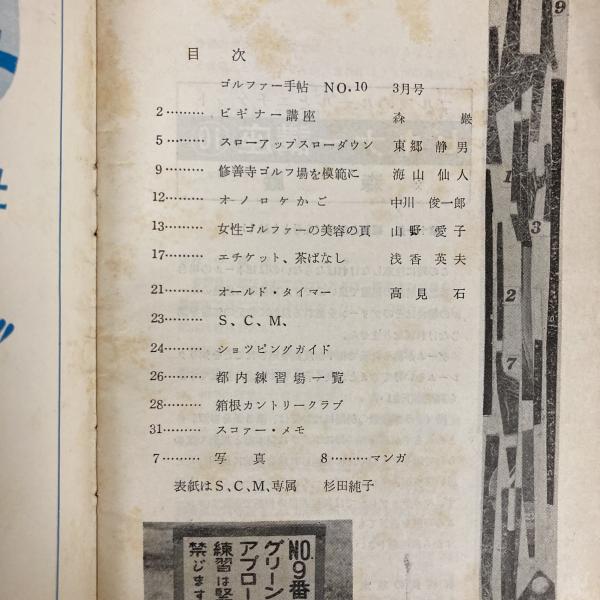 目次
ゴルファー手帖 NO.10 3月号
2………ビギナー講座 森 巌
5………スローアップスローダウン 東郷静男
9………修善寺ゴルフ場を模範に 海山仙人
12………オノロケかご 中川俊一郎
13………女性ゴルファーの美容の頁 山野愛子
17………エチケット、茶ばなし 浅香英夫
21………オールド・タイマー 高見石
23………S、C、M、
24………ショッピングガイド
26………都内練習場一覧
28………箱根カントリークラブ
31………スコァー・メモ
7………写真 8………マンガ
表紙はS、C、M、専属 杉田純子
NO.9番
グリーン
アプロー
練習は堅
禁じます
9
1
3
2
7